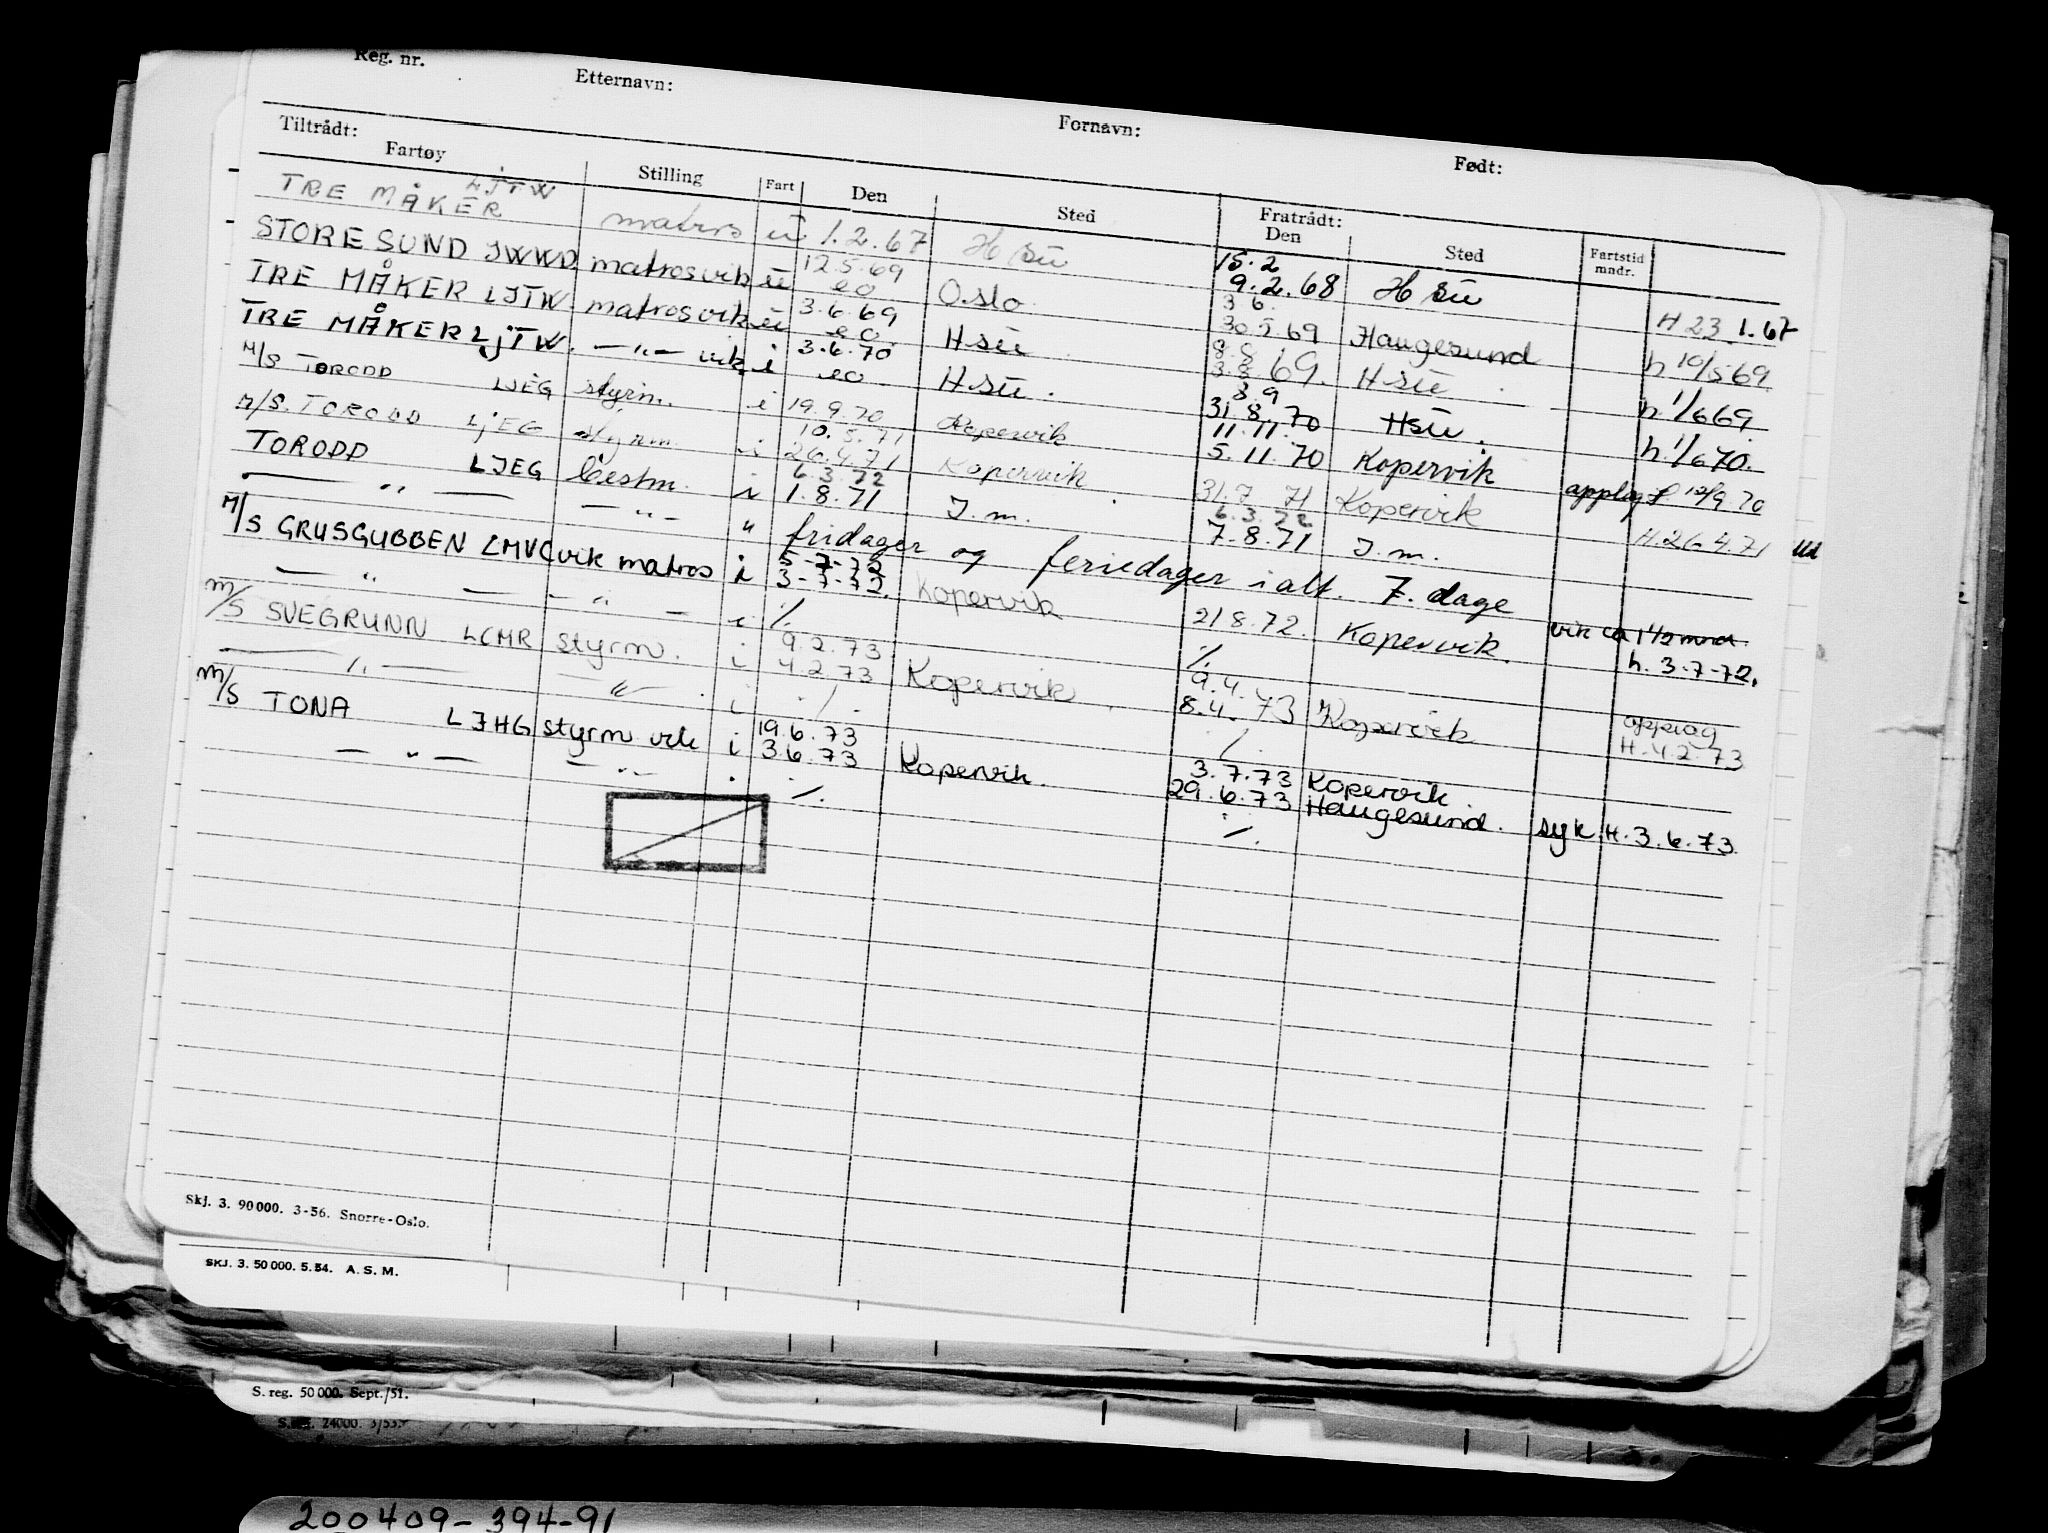 Reg. nr. Etternavn: Fornavn: Født:
Tiltrådt: Fratrådt:
Fartøy Stilling Fart Den Sted Den Sted Fartstid mndr.
TRE MÅKER LJTW matros ü 1.2.67 H sü 15.2 9.2.68 H sü H 23.1.67
STORESUND JWWD matros vik ü 12.5.69 eo Oslo 3 6. 30.5.69 Haugesund h 10/5 69
TRE MÅKER LJTW. matros vik ü 3.6.69 eo. H sü 8.8 3.8.69. H sü h 1/6 69
TRE MÅKER LJTW. — " — vik i 3.6.70 eo H sü. 8.9 31.8.70 H sü. h. 1/6 70.
M/S TORODD LJEG styrm. i 19.9.70 Kopervik 11.11. 5.11.70 Kopervik applag
M/S. TORODD LJEG styrm. i 10.5.71 26.4.71 Kopervik 31.7 71 Kopervik H. 26.4.71
TORODD LJEG bestm. i 6.3.72 1.8.71 J. m. 6.3.72 7.8.71 J. m.
— " — — " — " fridager og feriedager i alt. 7. dage
M/S GRUSGUBBEN LMVC vik matros i 5-7-72 3-7-72. Kopervik 21 8.72. Kopervik. vik ca 1 1/2 mnd h. 3-7-72.
— " — — " — i ٪.  ٪.
m/s SVEGRUNN LCMR styrm. i 9.2.73 4.2.73 Kopervik. 9.4. 8.4. 73 Kopervik applag H. 4.2.73
— " — — " — . i ٪. ٪.
m/s TONA LJHG styrm vik i 19.6.73 3.6.73 Kopervik. 3.7.73 29.6.73 Kopervik Haugesund. syk H. 3.6.73
— " — — " — . ٪. ٪.
Skj. 3. 90000. 3-56. Snorre-Oslo.
SKJ. 3. 50 000. 5. 54. A. S. M.
S. reg. 50 000. Sept./51.
24000. 3/53.
200409-394-91